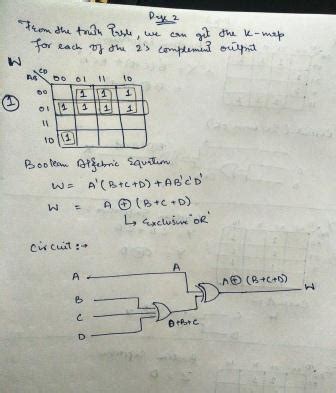 Page 2
From the truth table, we can get the K-map
for each of the 2's complement output
W
AB CD 00 01 11 10
00 1 1 1
01 1 1 1 1
11
10 1
①
Boolean Algebric Equation
W = A'(B+C+D) + AB'C'D'
W = A ⊕ (B+C+D)
↳ Exclusive 'OR'
Circuit :→
A A
A ⊕ (B+C+D) W
B
C
D B+B+C